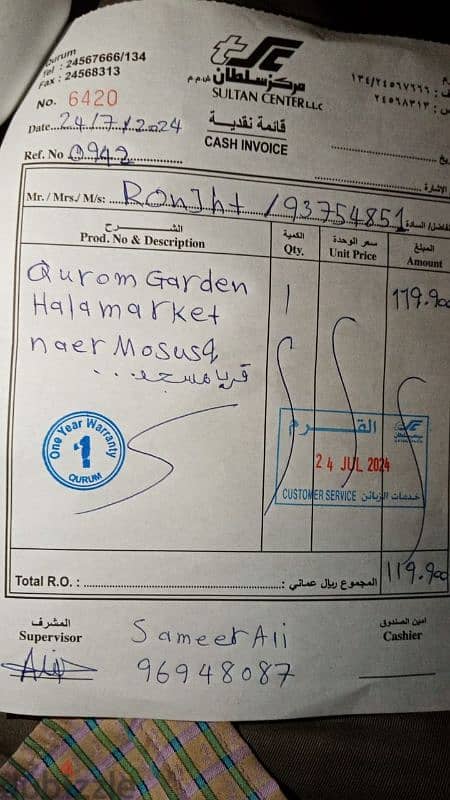 Qurum
Tel : 24567666/134
Fax : 24568313
No. 6420
Date 24/7/2024
Ref. No 0942
مركز سلطان ش.م.م
SULTAN CENTER LLC
قائمة نقدية
CASH INVOICE
١٣٤/٢٤٥٦٧٦٦٦
٢٤٥٦٨٣١٣
الإشارة
Mr. / Mrs./ M/s: Ronjht / 93754851 الفاضل/ السادة
الشـــــرح
Prod. No & Description
الكمية
Qty.
سعر الوحدة
Unit Price
المبلغ
Amount
Qurom Garden 1 119.900
Halamarket
naer Mosusq
One Year Warranty
1
QURUM
القـــرم
24 JUL 2024
CUSTOMER SERVICE خدمات الزبائن
Total R.O. : المجموع ريال عماني : 119.900
المشرف
Supervisor
Sameer Ali
96948087
امين الصندوق
Cashier
Ali
dubizzle